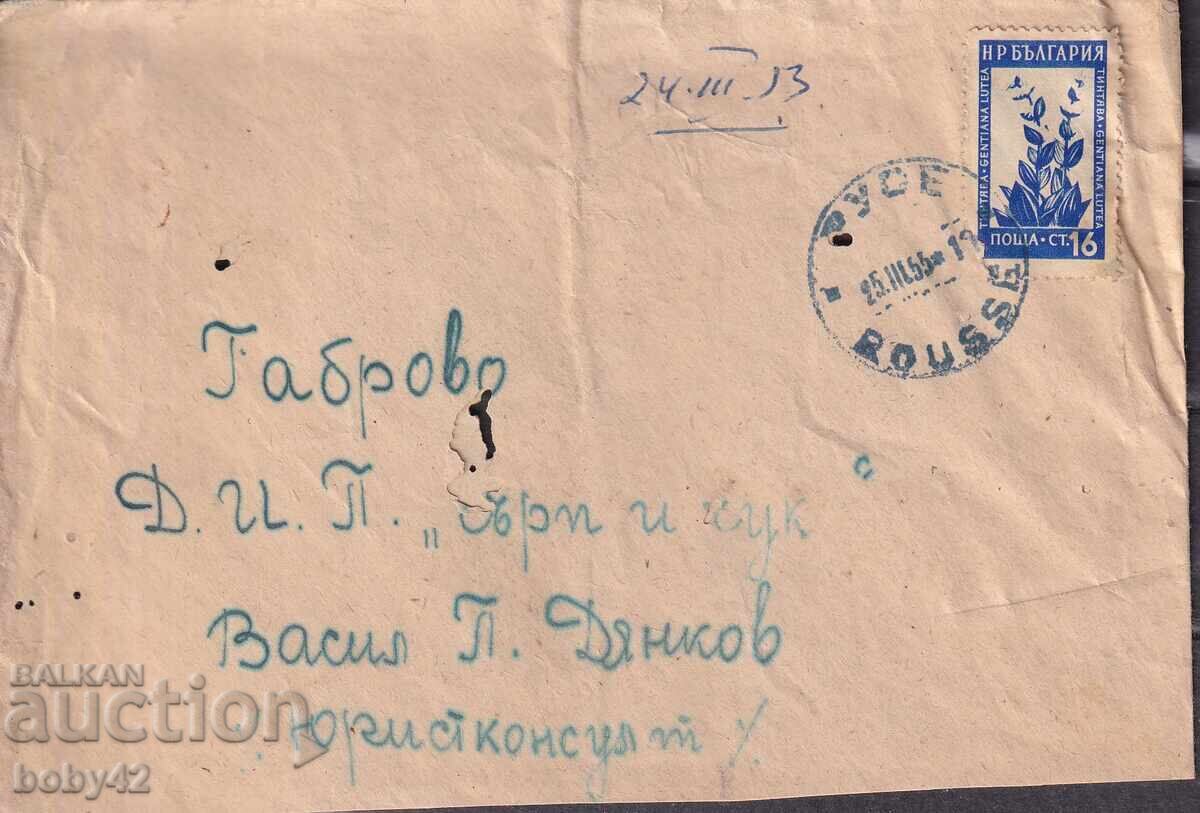 24.III.53
НР БЪЛГАРИЯ
ТИНТЯВА · GENTIANA LUTEA
ТИНТЯВА · GENTIANA LUTEA
ПОЩА · СТ. 16
РУСЕ
25.III.55
ROUSSE
Габрово
Д. И. П. „Сърп и чук“
Васил П. Дянков
Юристконсулт /
BALKAN
auction
boby42